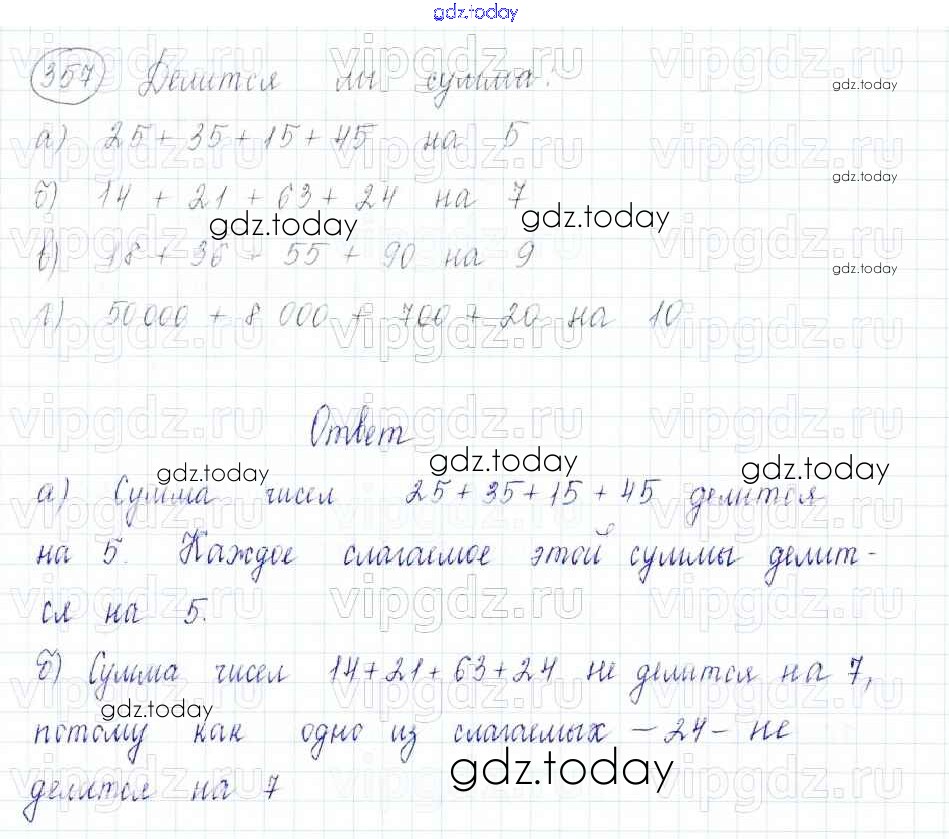 gdz.today
357 Делится ли сумма:
gdz.today
а) 25 + 35 + 15 + 45 на 5
gdz.today
б) 14 + 21 + 63 + 24 на 7
gdz.today gdz.today
в) 18 + 36 + 55 + 90 на 9
gdz.today
г) 50 000 + 8 000 + 700 + 20 на 10
Ответ
gdz.today gdz.today gdz.today
а) Сумма чисел 25 + 35 + 15 + 45 делится
на 5. Каждое слагаемое этой суммы делит-
ся на 5.
б) Сумма чисел 14 + 21 + 63 + 24 не делится на 7,
gdz.today
потому как одно из слагаемых – 24 – не
gdz.today
делится на 7